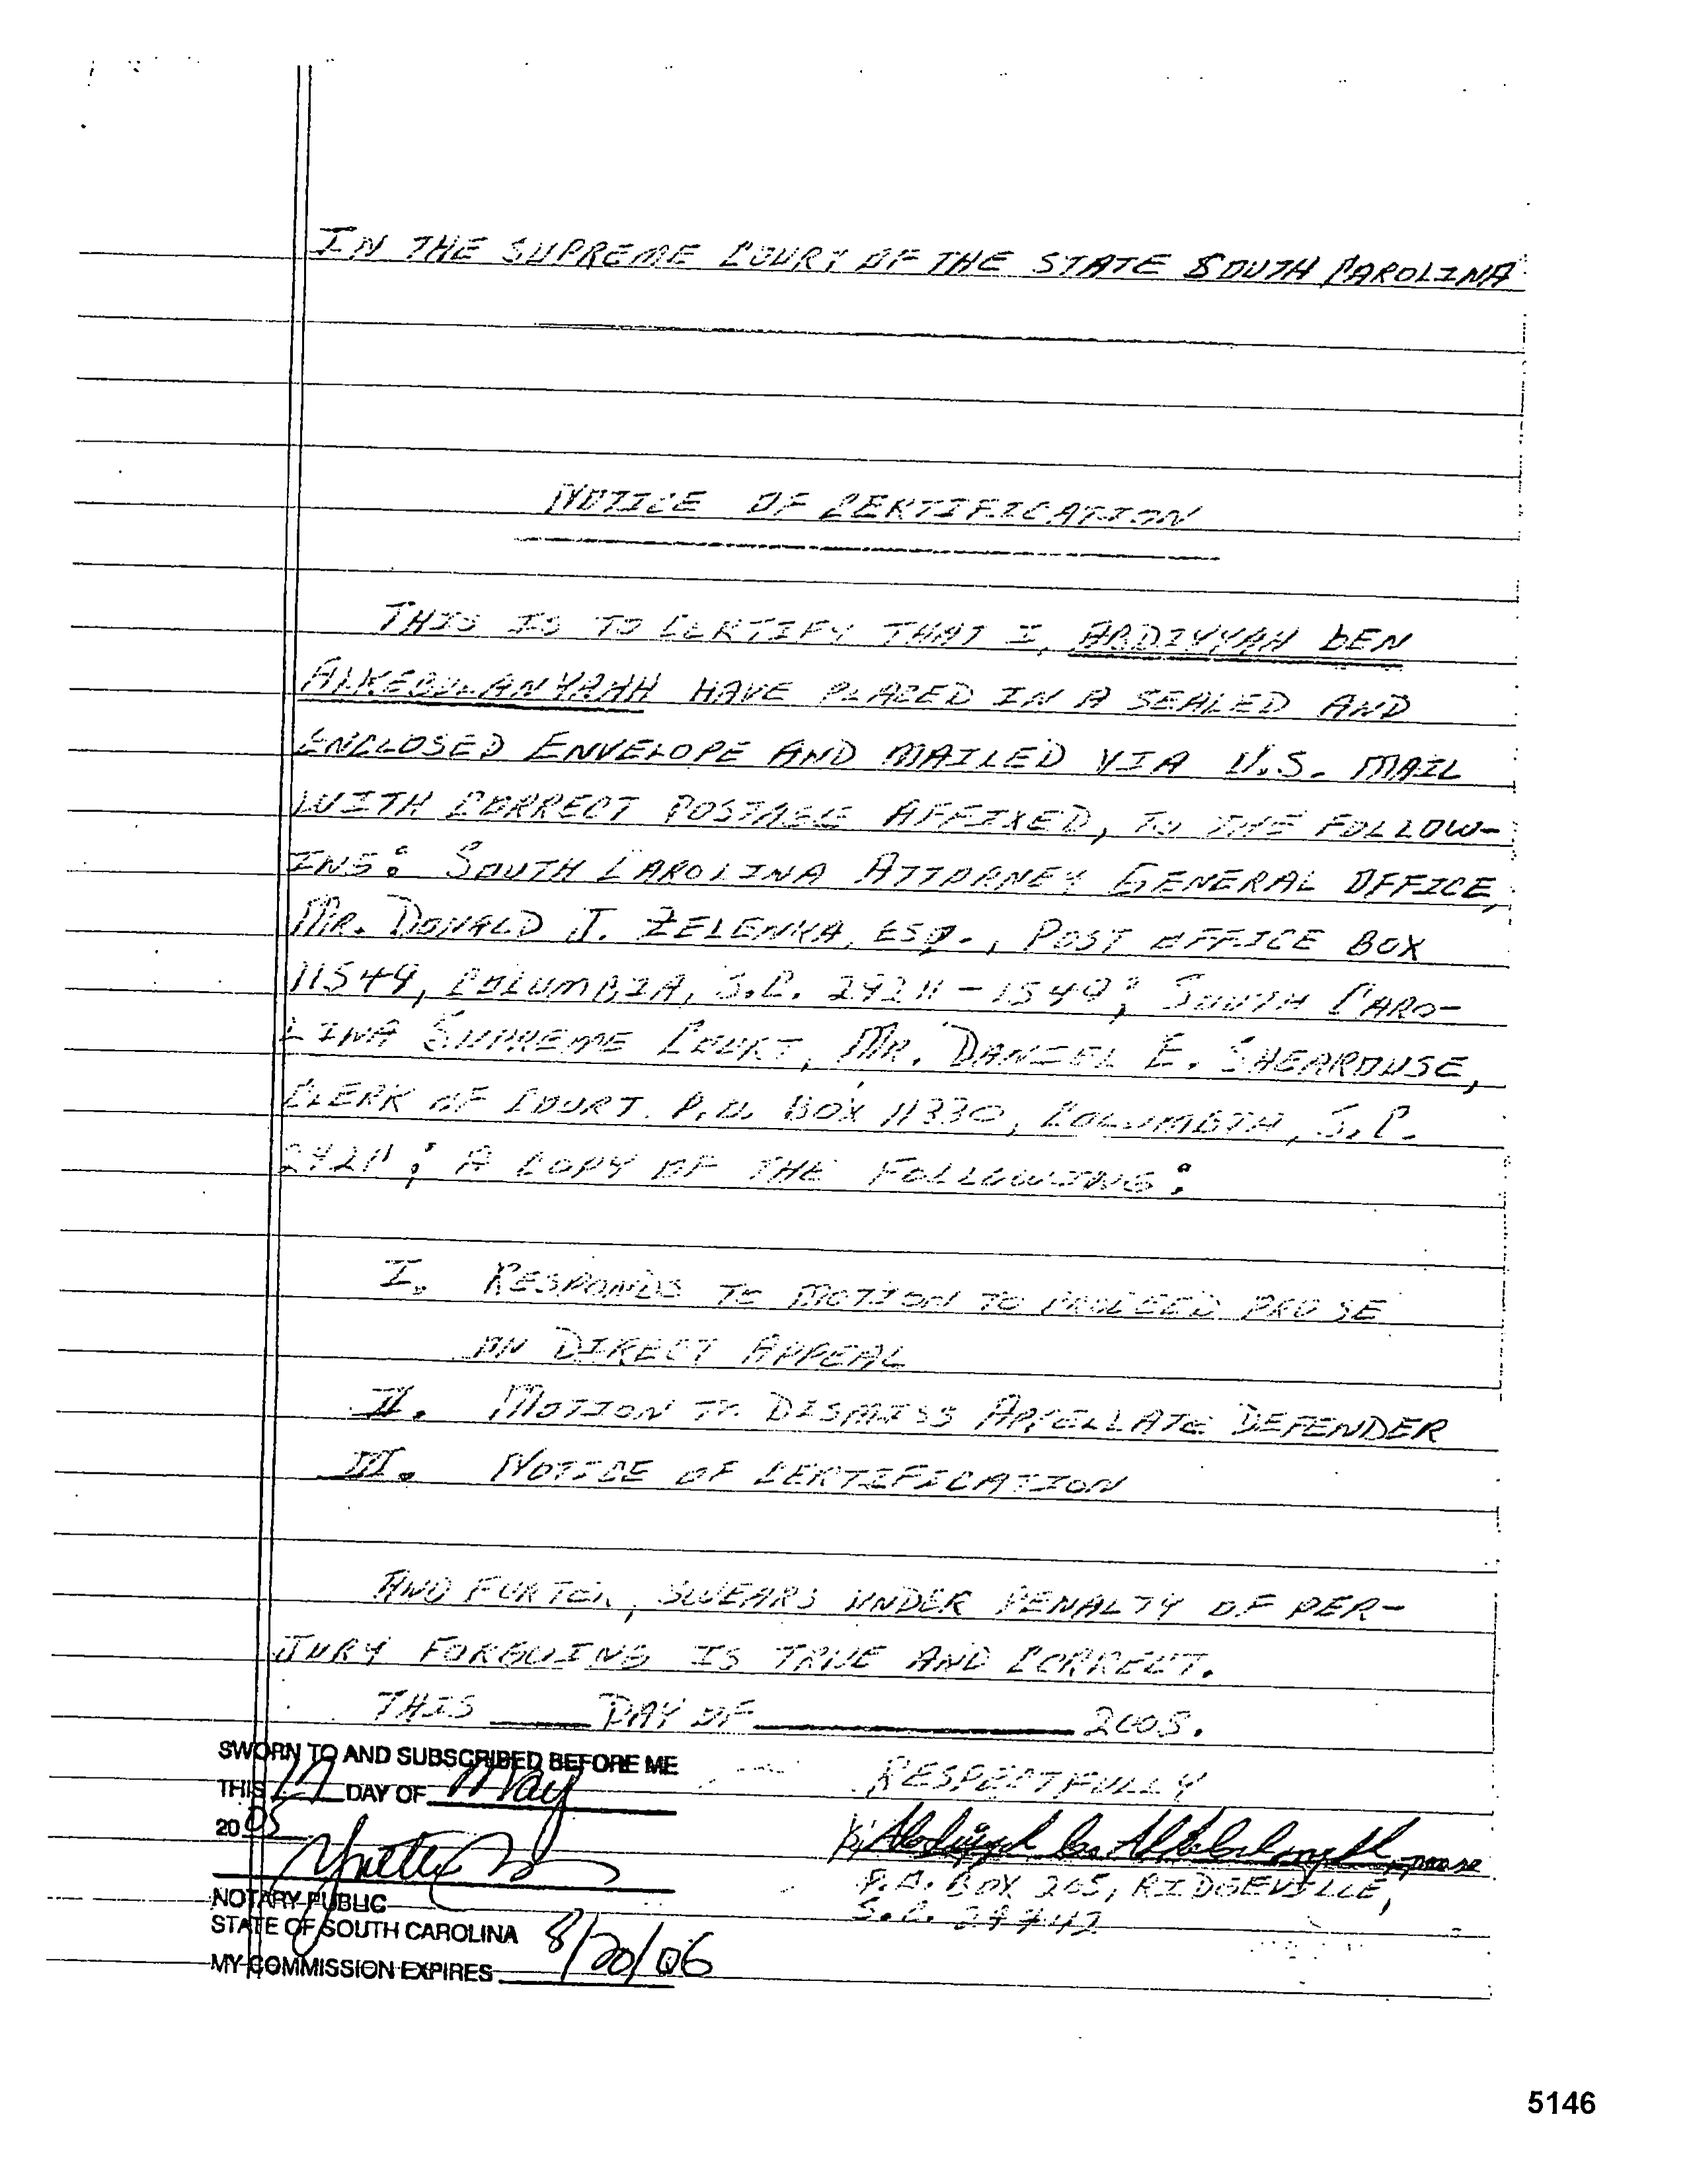 IN THE SUPREME COURT OF THE STATE SOUTH CAROLINA
NOTICE OF CERTIFICATION
THIS IS TO CERTIFY THAT I, ABDIYYAH bEN
ALKEBULANYAHH HAVE PLACED IN A SEALED AND
ENCLOSED ENVELOPE AND MAILED VIA U.S. MAIL
WITH CORRECT POSTAGE AFFIXED, TO THE FOLLOW-
ING: SOUTH CAROLINA ATTORNEY GENERAL OFFICE,
MR. DONALD J. ZELENKA, ESQ., POST OFFICE BOX
11549, COLUMBIA, S.C. 29211-1549; SOUTH CARO-
LINA SUPREME COURT, MR. DANIEL E. SHEAROUSE,
CLERK OF COURT. P.O. BOX 11330, COLUMBIA, S.C.
29211; A COPY OF THE FOLLOWING:
I. RESPONDS TO MOTION TO PROCEED PRO SE
ON DIRECT APPEAL
II. MOTION TO DISMISS APPELLATE DEFENDER
III. NOTICE OF CERTIFICATION
AND FURTER, SWEARS UNDER PENALTY OF PER-
JURY FORGOING IS TRUE AND CORRECT.
THIS ____ DAY OF ____________ 2005.
SWORN TO AND SUBSCRIBED BEFORE ME
THIS 17 DAY OF May
2005
RESPECTFULLY
Abdiyyah ben Alkebulanyahh, pro se
P.O. BOX 205, RIDGEVILLE,
S.C. 29472
NOTARY PUBLIC
STATE OF SOUTH CAROLINA
MY COMMISSION EXPIRES 8/20/06
5146